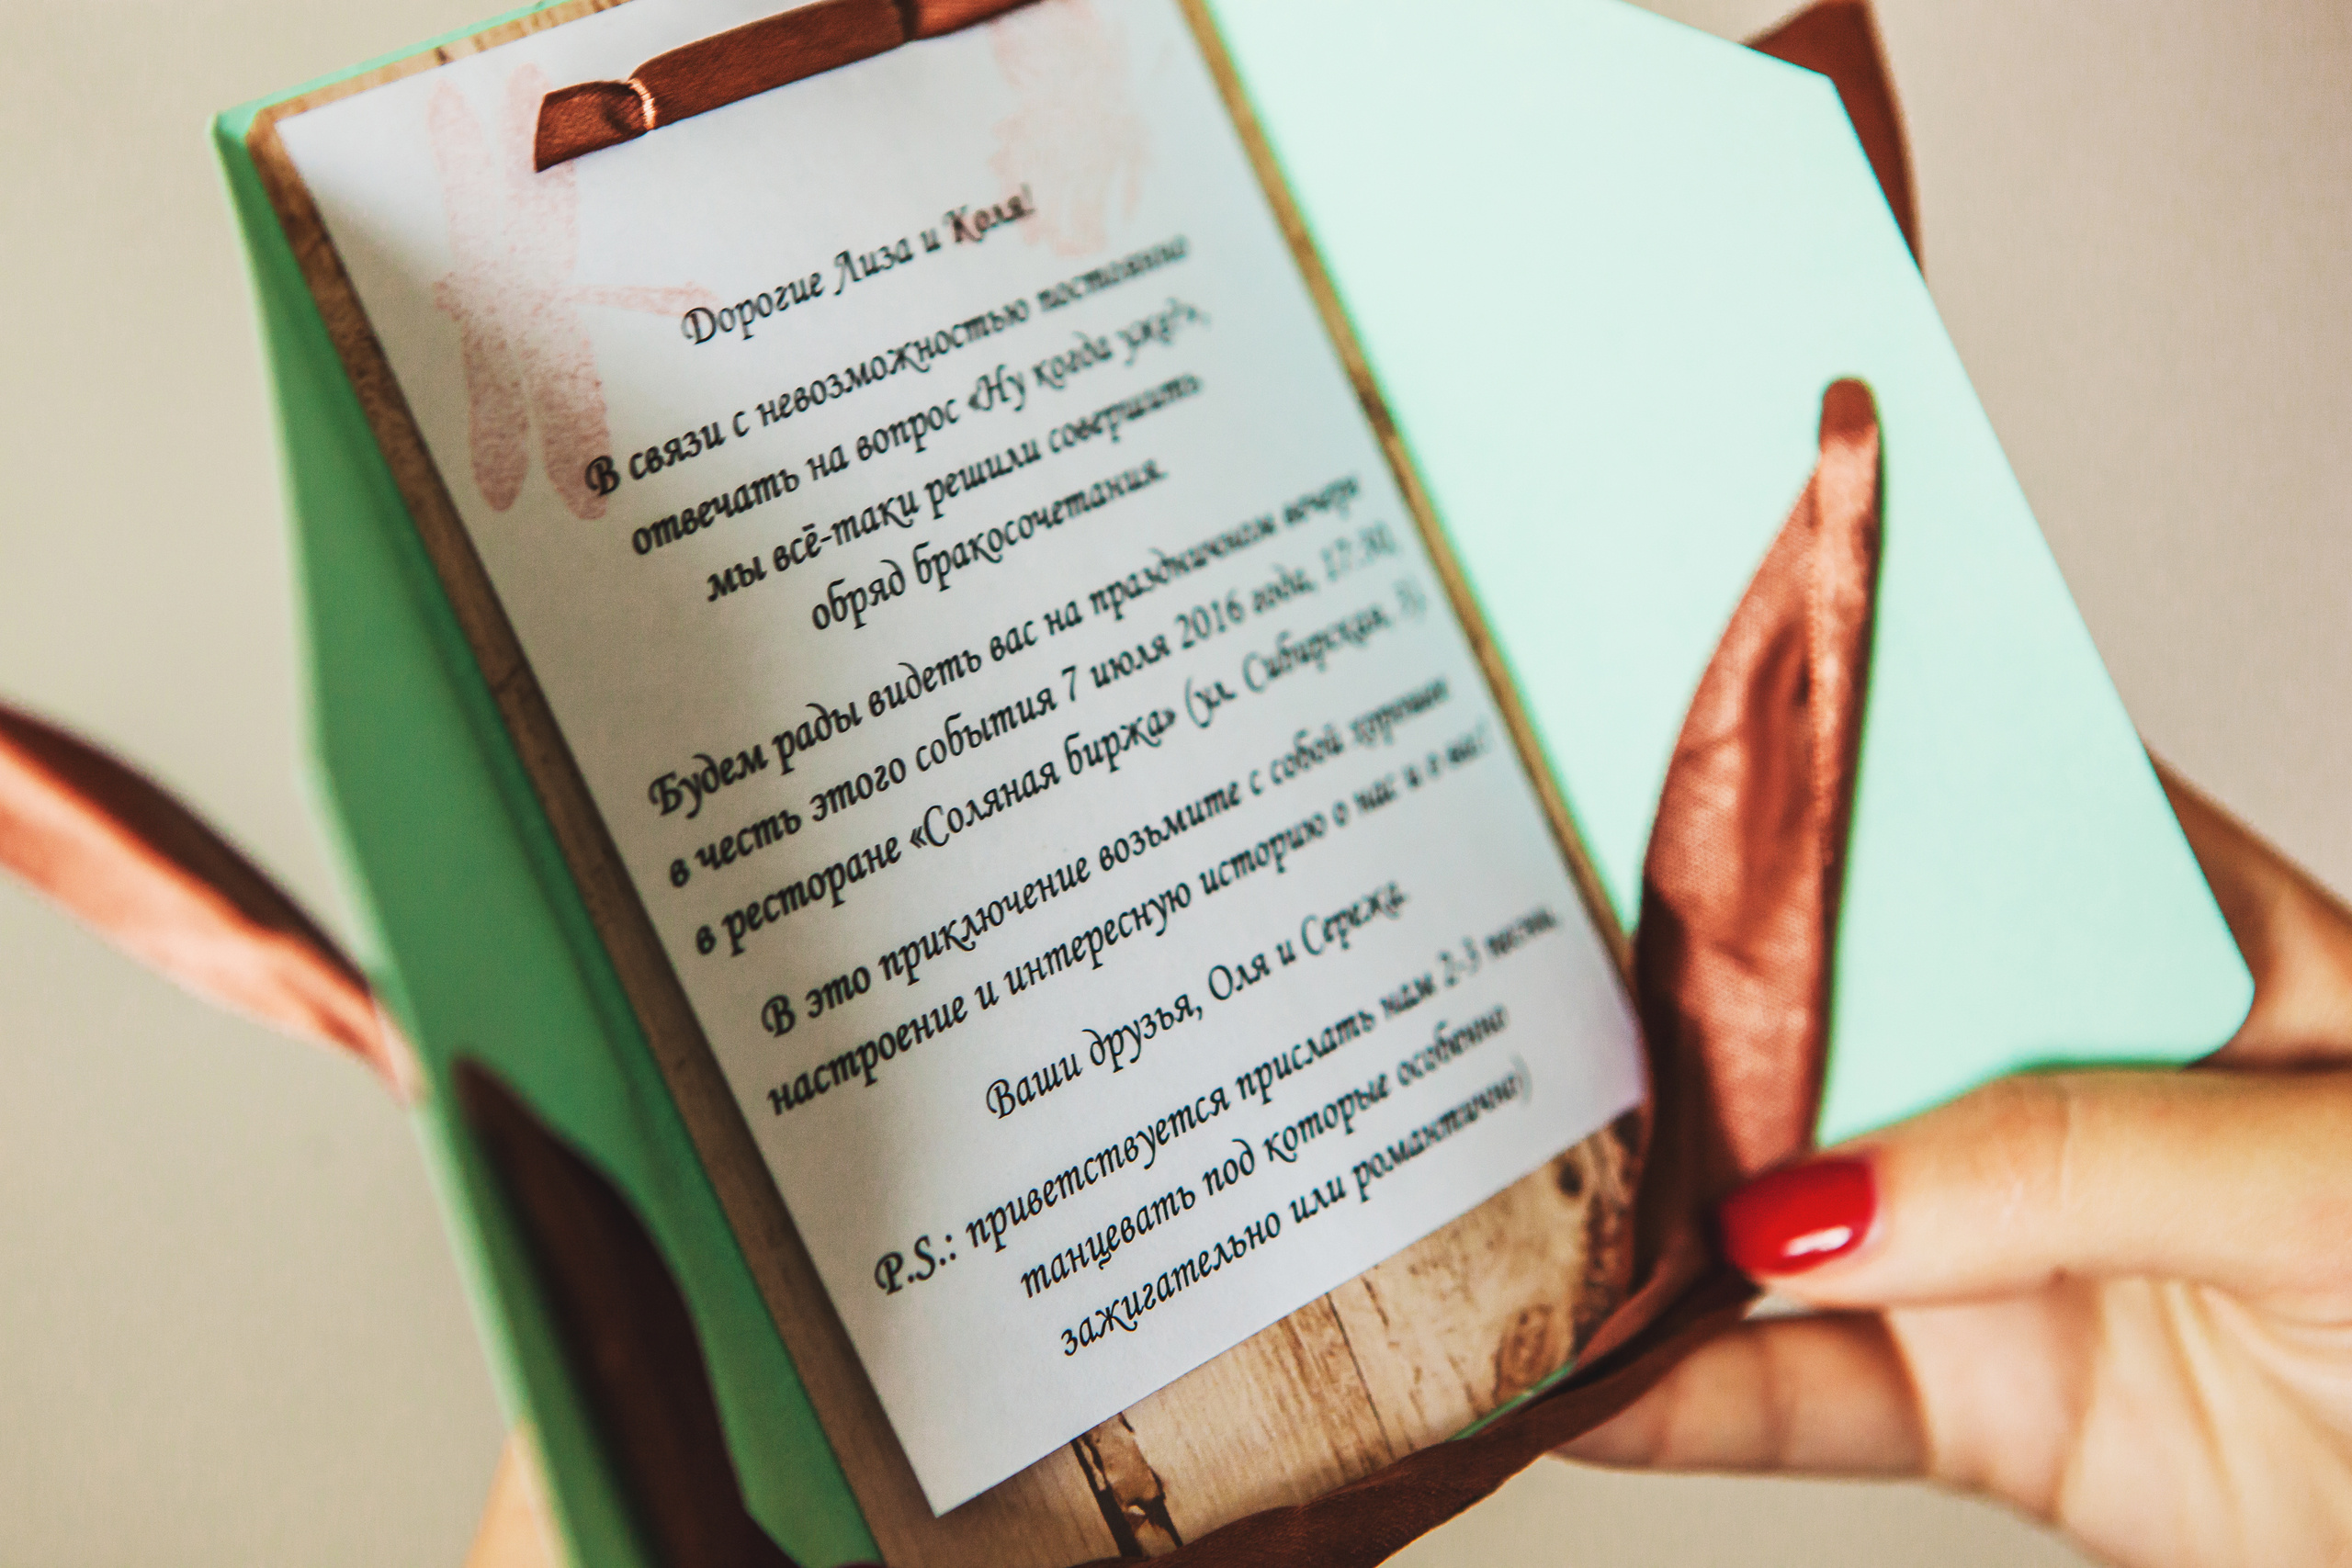 Дорогие Лиза и Коля!
В связи с невозможностью постоянно
отвечать на вопрос «Ну когда уже?»,
мы всё-таки решили совершить
обряд бракосочетания.
Будем рады видеть вас на праздничном вечере
в честь этого события 7 июля 2016 года, 17:30,
в ресторане «Соляная биржа» (ул. Сибирская,
В это приключение возьмите с собой хорошее
настроение и интересную историю о нас и о вас!
Ваши друзья, Оля и Сережа.
P.S.: приветствуется прислать нам 2-3 песни,
танцевать под которые особенно
зажигательно или романтично)